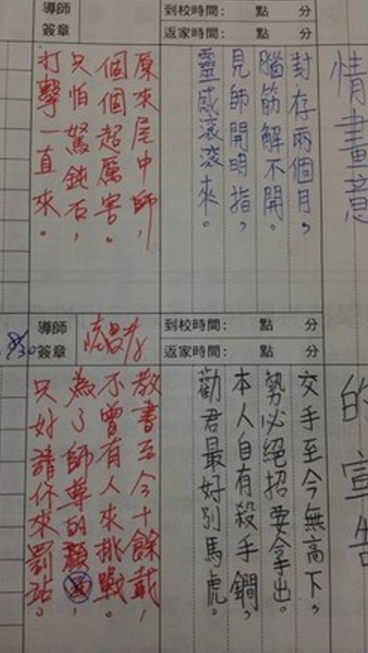 導師
簽章
到校時間： 點 分
返家時間： 點 分
情畫意
封存兩個月，
腦筋解不開。
見師開明指，
靈感滾滾來。
原來尾中師，
個個超厲害。
只怕駑鈍石，
打擊一直來。
導師
簽章
到校時間： 點 分
返家時間： 點 分
的宣告
交手至今無高下，
勢必絕招要拿出。
本人自有殺手鐧，
勸君最好別馬虎。
教書至今十餘載，
不曾有人來挑戰。
為了師尊的
只好請你來罰站。